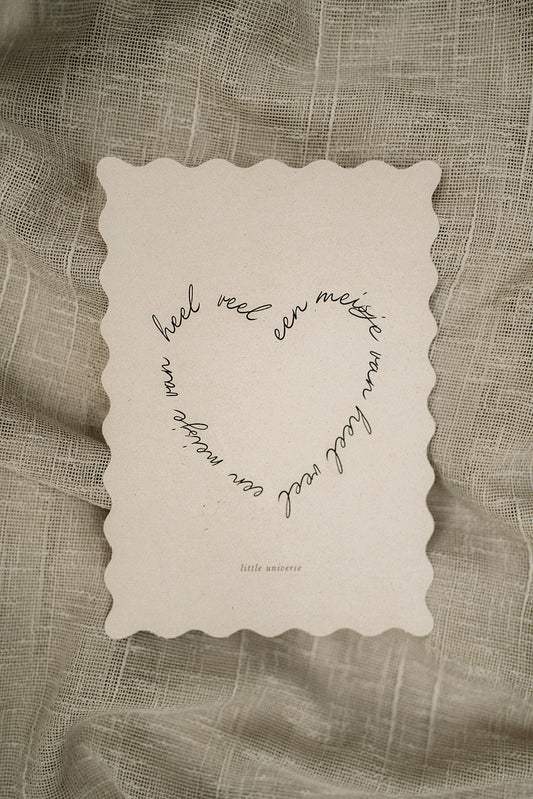 een meisje van heel veel
een meisje van heel veel
little universe